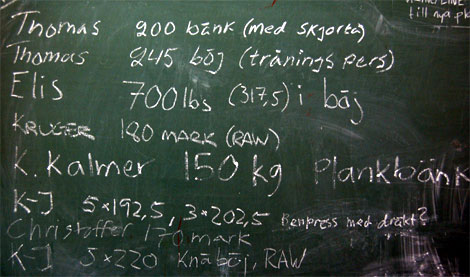 till nya pk
Thomas 200 bänk (med skjorta)
Thomas 245 böj (tränings pers)
Elis 700 lbs (317,5) i böj
KRUGER 180 MARK (RAW)
K. Kalmer 150 kg Plankbänk
K-J 5x192,5, 3x202,5 Benpress med dräkt?
Christoffer 170 mark
K-J 5x220 Knäböj, RAW